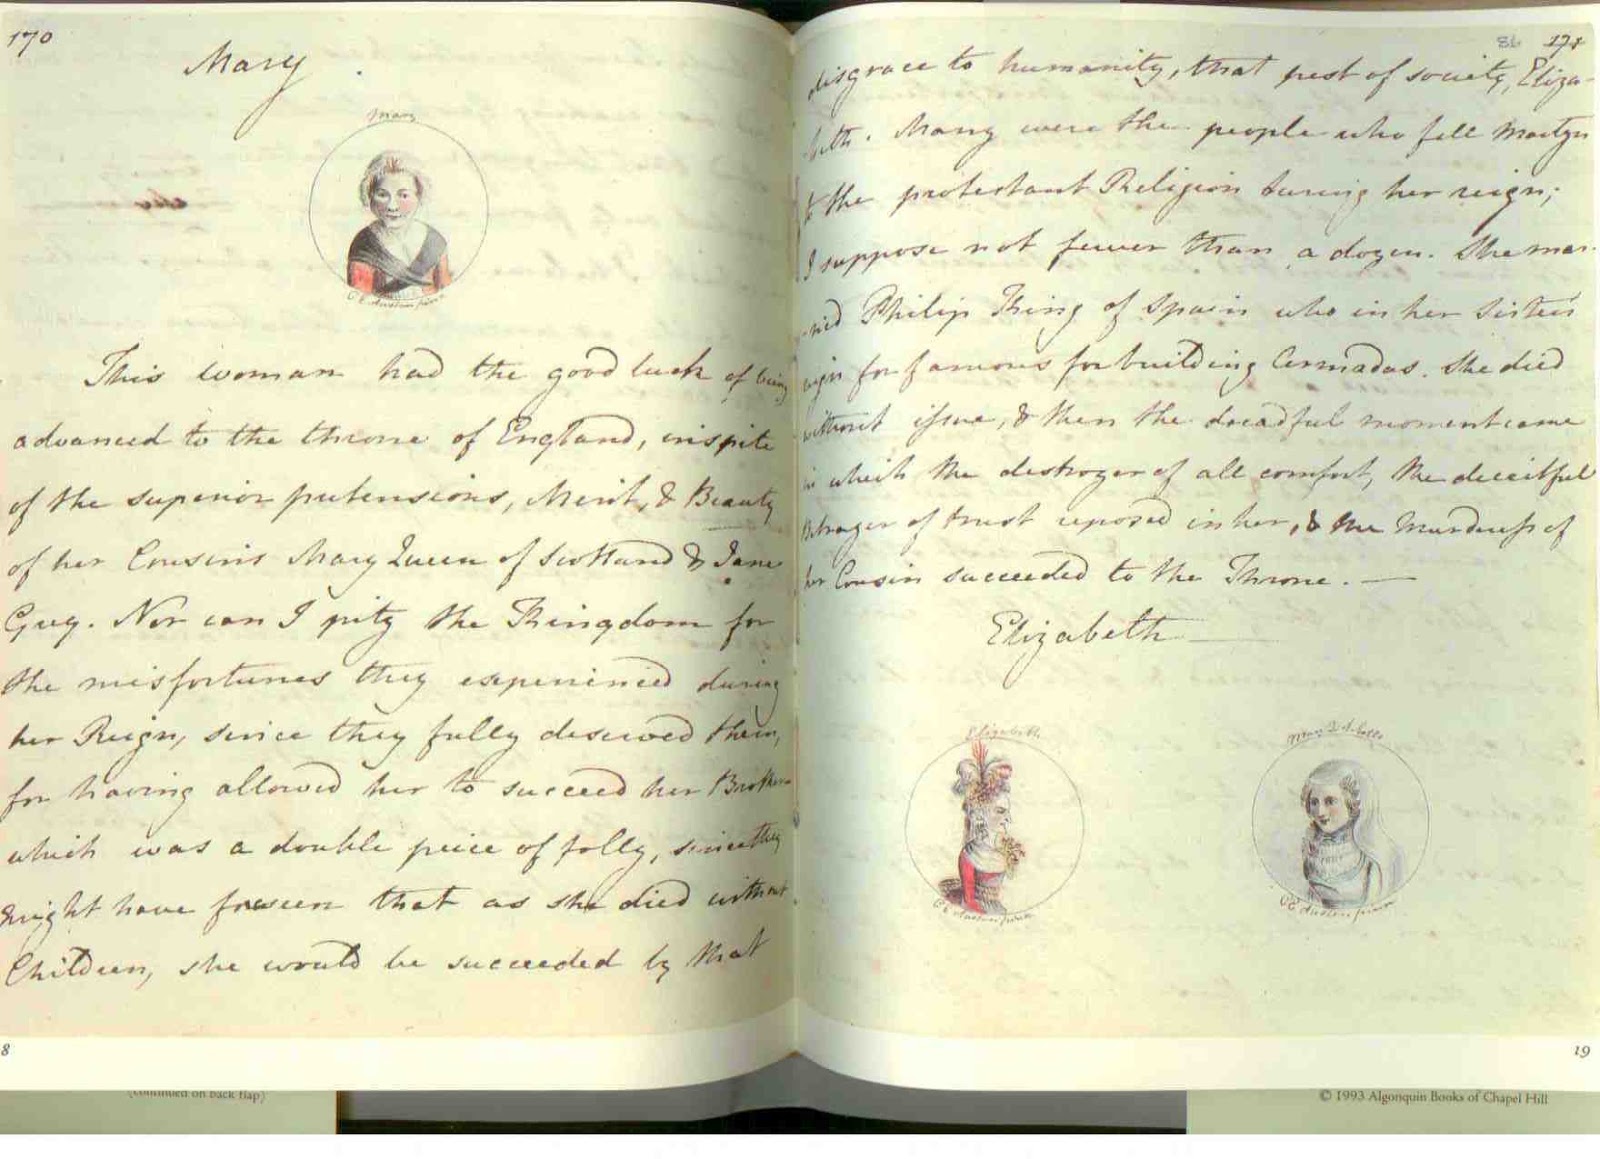 170
Mary
Mary
C E Austen pinx
This woman had the good luck of being
advanced to the throne of England, inspite
of the superior pretensions, Merit, & Beauty
of her Cousins Mary Queen of Scotland & Jane
Grey. Nor can I pity the Kingdom for
the misfortunes they experienced during
her Reign, since they fully deserved them,
for having allowed her to succeed her Brother
which was a double peice of folly, since they
might have foreseen that as she died without
Children, she would be succeeded by that
8
(continued on back flap)
86 171
disgrace to humanity, that pest of society, Eliza-
-beth. Many were the people who fell Martyrs
to the protestant Religion during her reign;
I suppose not fewer than a dozen. She mar-
-ried Philip King of Spain who in her Sisters
reign for famous for building Armadas. She died
without issue, & then the dreadful moment came
in which the destroyer of all comfort, the deceitful
Betrayer of trust reposed in her, & the Murderess of
her Cousin succeeded to the Throne. —
Elizabeth
Elizabeth
C E Austen pinx
Mary Q of Scotts
C E Austen pinx
19
© 1993 Algonquin Books of Chapel Hill